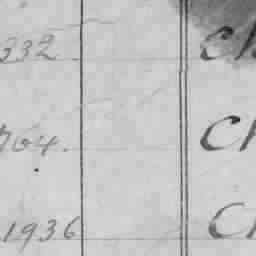 332 Ch
764. Ch
1936 Ch